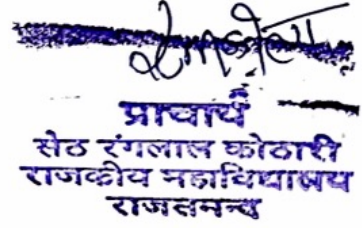 प्राचार्य
सेठ रंगलाल कोठारी
राजकीय महाविद्यालय
राजसमन्द